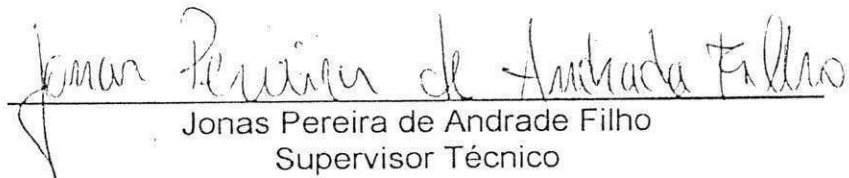 Jonas Pereira de Andrade Filho
Jonas Pereira de Andrade Filho
Supervisor Técnico